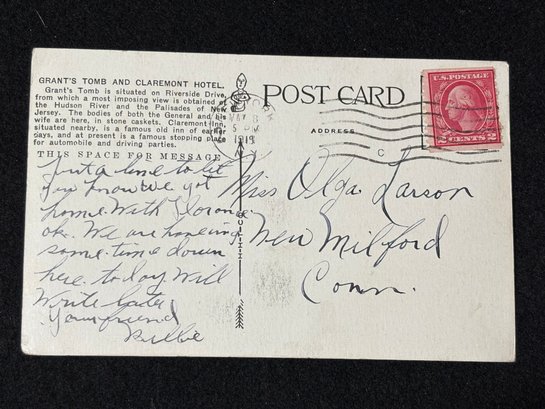 GRANT'S TOMB AND CLAREMONT HOTEL.
Grant's Tomb is situated on Riverside Drive
from which a most imposing view is obtained of
the Hudson River and the Palisades of New
Jersey. The bodies of both the General and his
wife are here, in stone caskets. Claremont Inn,
situated nearby, is a famous old inn of earlier
days, and at present is a famous stopping place
for automobile and driving parties.
THIS SPACE FOR MESSAGE
Just a line to let
you know we got
home with
ok. We are haveing
some time down
here to day. Will
Write later
Your friend
Billie
POST CARD
ADDRESS
8
5 PM
1919
C
U.S. POSTAGE
2 CENTS 2
Miss Olga Larson
New Milford
Conn.